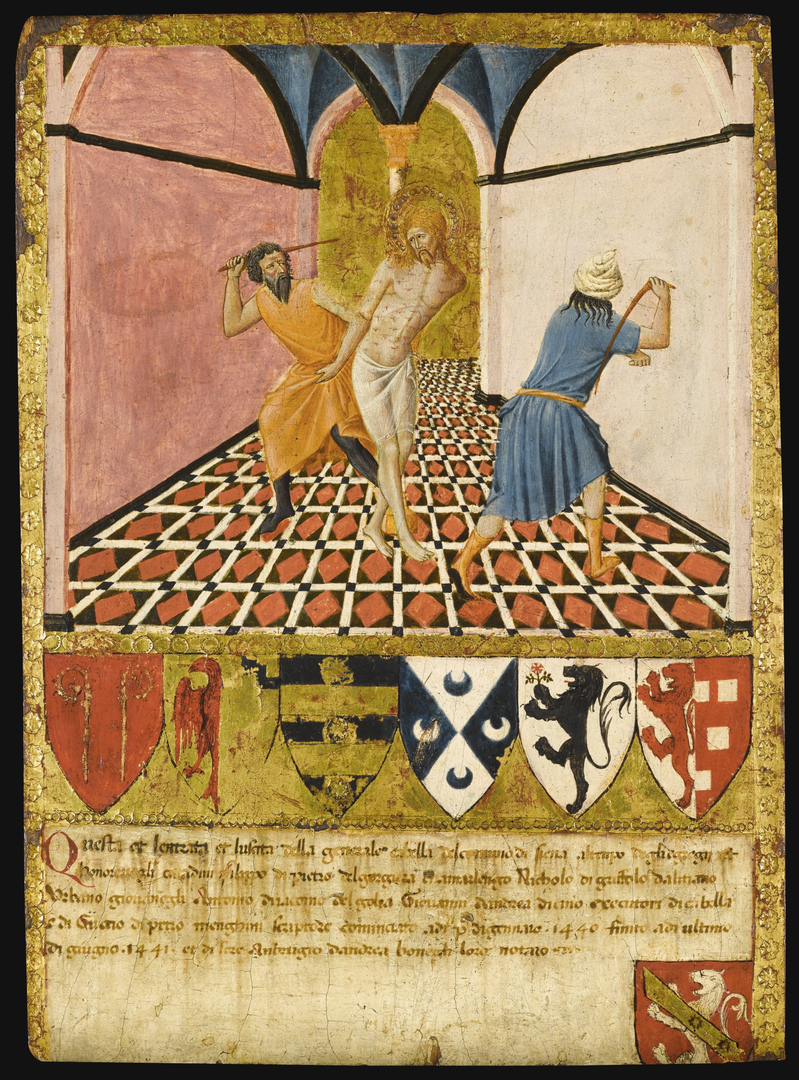 Questa et lentrata et luscita della generale cabella del comuno di siena al tempo degli egregii et
honorevogli citadini filippo di pietro del Camarlengo Nicholo di
Urbano Antonio di iacomo del golia Giovanni dandrea executori di cabella
di Guccio di scriptore cominciato adi p° di gennaio 1440 finito adi ultimo
di giugno 1441 et di sere Anbruogio dandrea loro notaro